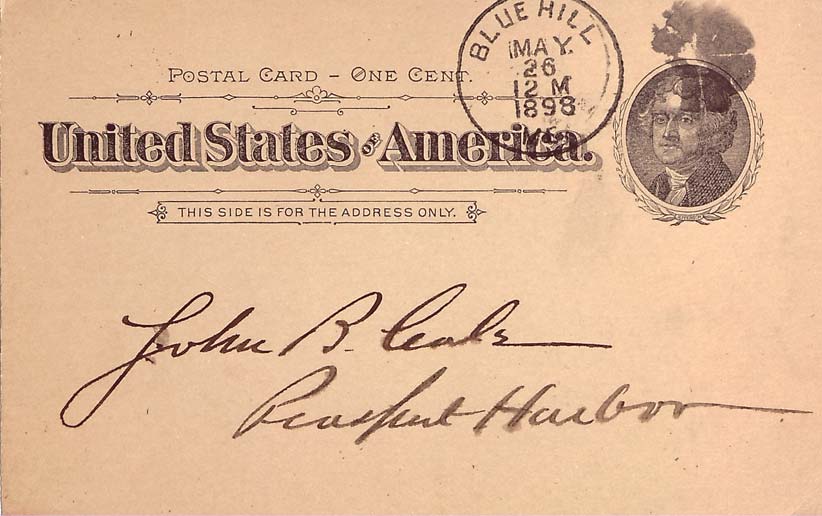 BLUE HILL
MAY.
26
12 M
1898
ME.
POSTAL CARD – ONE CENT.
United States OF America.
THIS SIDE IS FOR THE ADDRESS ONLY.
John B.
Prospect Harbor